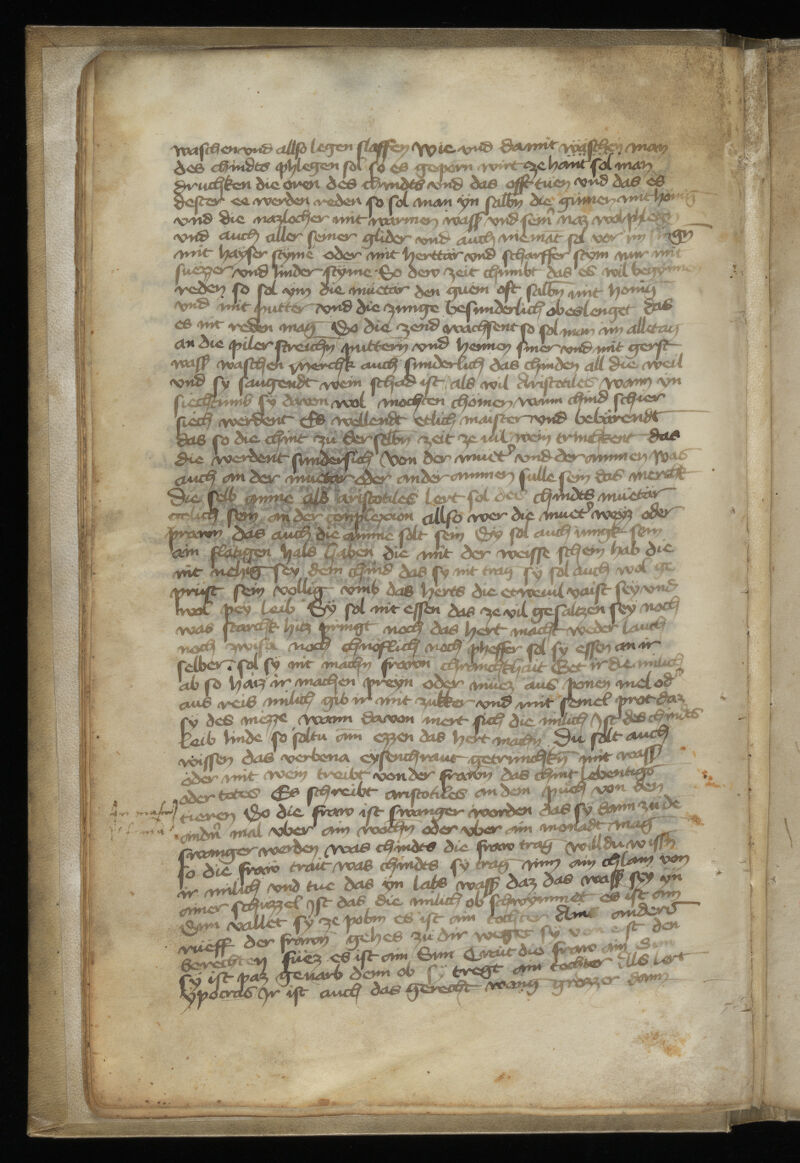 waschen vnd allso legen slaffen wie vnd damit waschen man
des chindts phlegen sol so es geporn wirt ze hant sol man
druchken die oren des chindts vnd das offt tuen vnd das es
dester ee werden reden so sol man yn salbn die ginnen mit honig
vnd die nazlocher mit warmen wass vnd sein naz wol phlegn
vnd auch aller seiner glider vnd auch niemat sol vor im singn
mit hayser styme oder mit herttar vnd scharffer stym nur mit
suezzer vnd linder styme So der zeit chumbt das es wil begynnen
reden so sol ym die mueter den guem oft salbn mit honig
vnd mit putter vnd die zunge besunderlich ob es lenget das
es nit reden mag Do die zend wachsent so sol man im alletag
an die piler streichn puttern vnd hennen smer vnd mit gerst
wass waschen Merchk auch sunderlich das chinden all die weil
vnd sy saugendt wein schad ist als wil Aristotiles wann yn
siechtumb sy dauon wol mochten chomen warum chind schier
siech werdent Es wellendt etlich maister vnd bebärendt
das so die chint zu der selbn zeit ze vil wein trinchkent das
die werdent sundersich Von der muet' vnd der ammen was
auch an der muetar oder ander ammen sulle sein das merckt
Die selb amme als aristotiles lert sol des chindts muetar
gelich sein an der complexion allso wer die muet' weyz oder
prawn das auch die amme solt sein Sy sol auch iungk sein
ain flaizzgen hals haben die mit der weisse schein hab die
nit nehig sey dem chind das sy nit trag sy sol auch wol ge
prust sein vollig vmb das herts die etweuil vaist sey vnd
wol pey leib Sy sol nit essen das ze vil gesaltzen sey noch
was starckh hitz pringt noch das hert macht weder lauch
noch zwifal noch chnoflich noch pheffer sol sy essen an ir
selber sol sy nit machn frawn chranchkhait Get ir die milich
ab so haiz ir machen preyn oder muez aus ponen mel od'
aus reis milich gib ir mit zukker vnd mit semel prot daz
sy des niezze wann dauon mert sich die milich Ist des chindts
leib linde so soltu im ezzen das hert machn Du solt auch
wissen das verbena eysenchraut getrunchkn mit wass
oder mit wein treibt von der frawn das chint lebentigs
oder totes Es schreibt aristotiles an dem puch von den
tieren Do die fraw ist swanger worden das sy dann zu de
andn mal vber ain wochn oder vber ain monadt mag
swanger werden was chindts die fraw trag willdu wissn
so die fraw trait was chindts sy trag nim ain chlain von
ir milich vnd tue das yn labs wass daz das wass sey yn
ainer schuzzel Ist das die milich ob schwymmet es ist ain
Sun vallet sy ze podm es ist ain tochter Aine anders
rueff der frawn gehes zu dir weget sy von erst den
gerechten fuez es ist ain Sun Trait die fraw ain Sun
sy ist paz geuarb denn ob sy tregt ain tochter Alls lert
ypocras Ir ist auch das gerecht wang grozzer dann